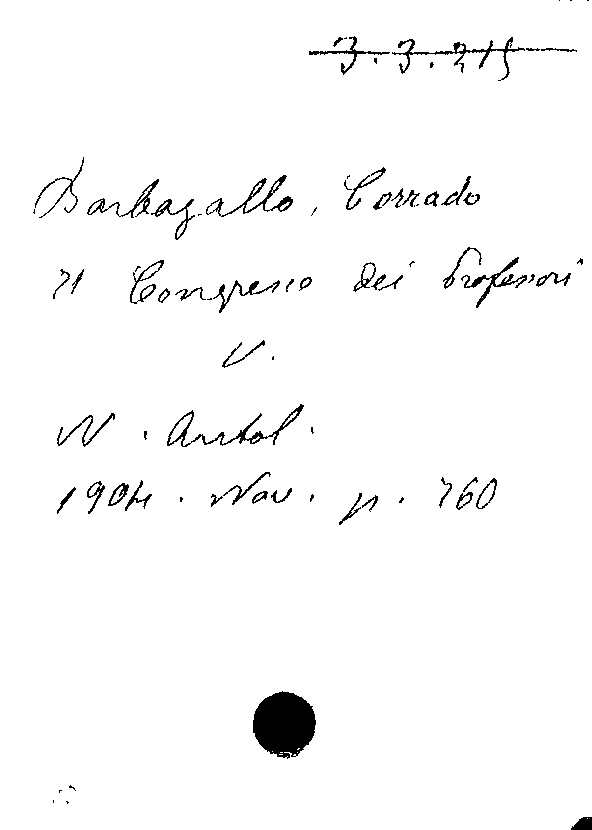 3.3.215
Barbagallo, Corrado
Il Congresso dei Profesori
V.
N. Antol.
1904. Nov. p. 760